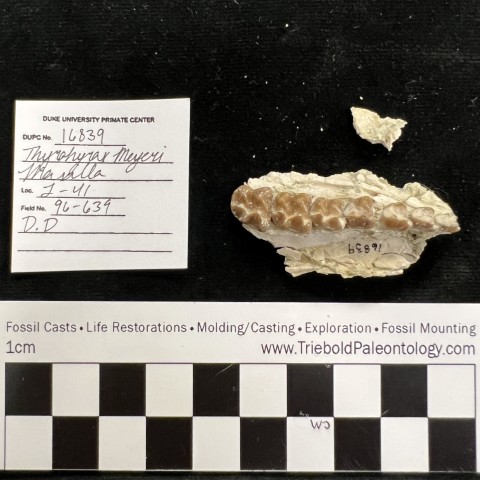 DUKE UNIVERSITY PRIMATE CENTER
DUPC No. 16839
Thyrohyrax Meyeri
Maxilla
Loc. I-41
Field No. 96-639
D.D
16839
Fossil Casts • Life Restorations • Molding/Casting • Exploration • Fossil Mounting
1cm www.TrieboldPaleontology.com